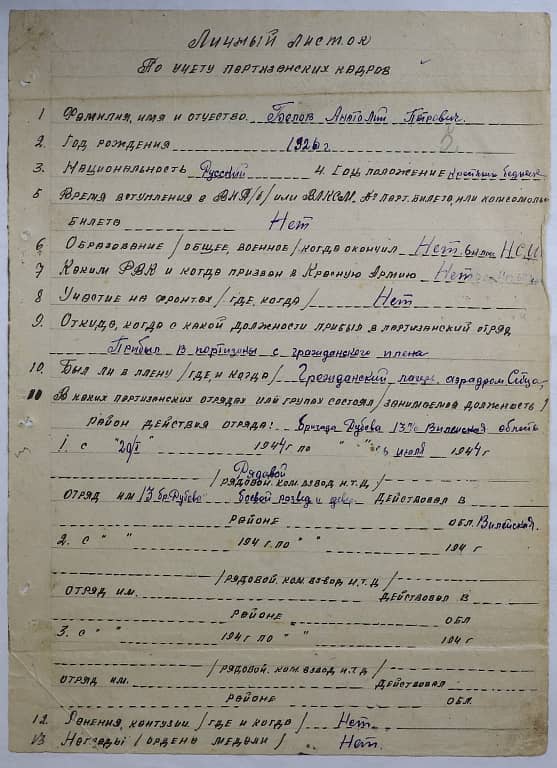 Личный листок
По учету партизанских кадров
1 Фамилия, имя и отчество Белов Анатолий Петрович.
2. Год рождения 1926 г
3. Национальность Русский 4. Соц. положение
5 Время вступления в ВКП/б/ или ВЛКСМ, № парт. билета, или комсомольс
билета Нет
6 Образование /общее, военное/ когда окончил Нет.
7 Каким РВК и когда призван в Красную Армию Нет
8 Участие на фронтах /где, когда/ Нет
9. Откуда, когда с какой должности прибыл в партизанский отряд
Прибыл в партизаны с гражданского плена
10. Был ли в плену /где и когда/ Гражданский лагерь, аэродром
11 В каких партизанских отрядах или группах состоял /занимаемая должность/
район действия отряда: Бригада Дубова Вилейская область
1. с "20/I" 1944 г по " " июля 1944 г
Рядовой
/рядовой. ком. взвод и.т.д./
отряд им 13 бр. Дубова боевой развед и Действовал в
районе обл. Вилейская.
2. с " " 194 г. по " " 194 г
/рядовой. ком. взвод и.т.д./
отряд им. Действовал в
районе обл
3. с " " 194 г по " " 194 г
/рядовой. ком. взвод и.т.д./
отряд им. Действовал в
районе обл
12. Ранения, контузии /где и когда/ Нет.
13 Награды /ордена медали/ Нет.